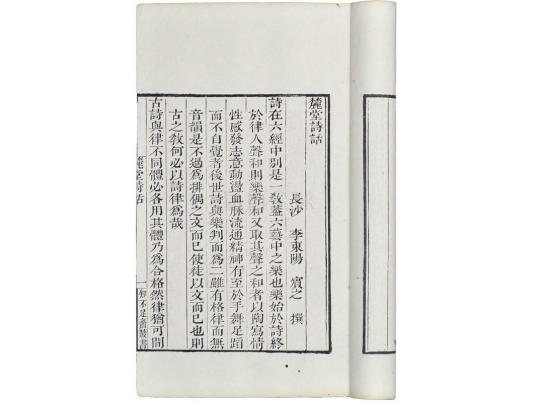 麓堂詩話
長沙 李東陽 賓之 撰
詩在六經中別是一教蓋六藝中之樂也樂始於詩終
於律人聲和則樂聲和又取其聲之和者以陶寫情
性感發志意動盪血脉流通精神有至於手舞足蹈
而不自覺者後世詩與樂判而為二雖有格律而無
音韻是不過為排偶之文而已使徒以文而已也則
古之教何必以詩律為哉
古詩與律不同體必各用其體乃為合格然律猶可間
麓堂詩話
一
知不足齋叢書